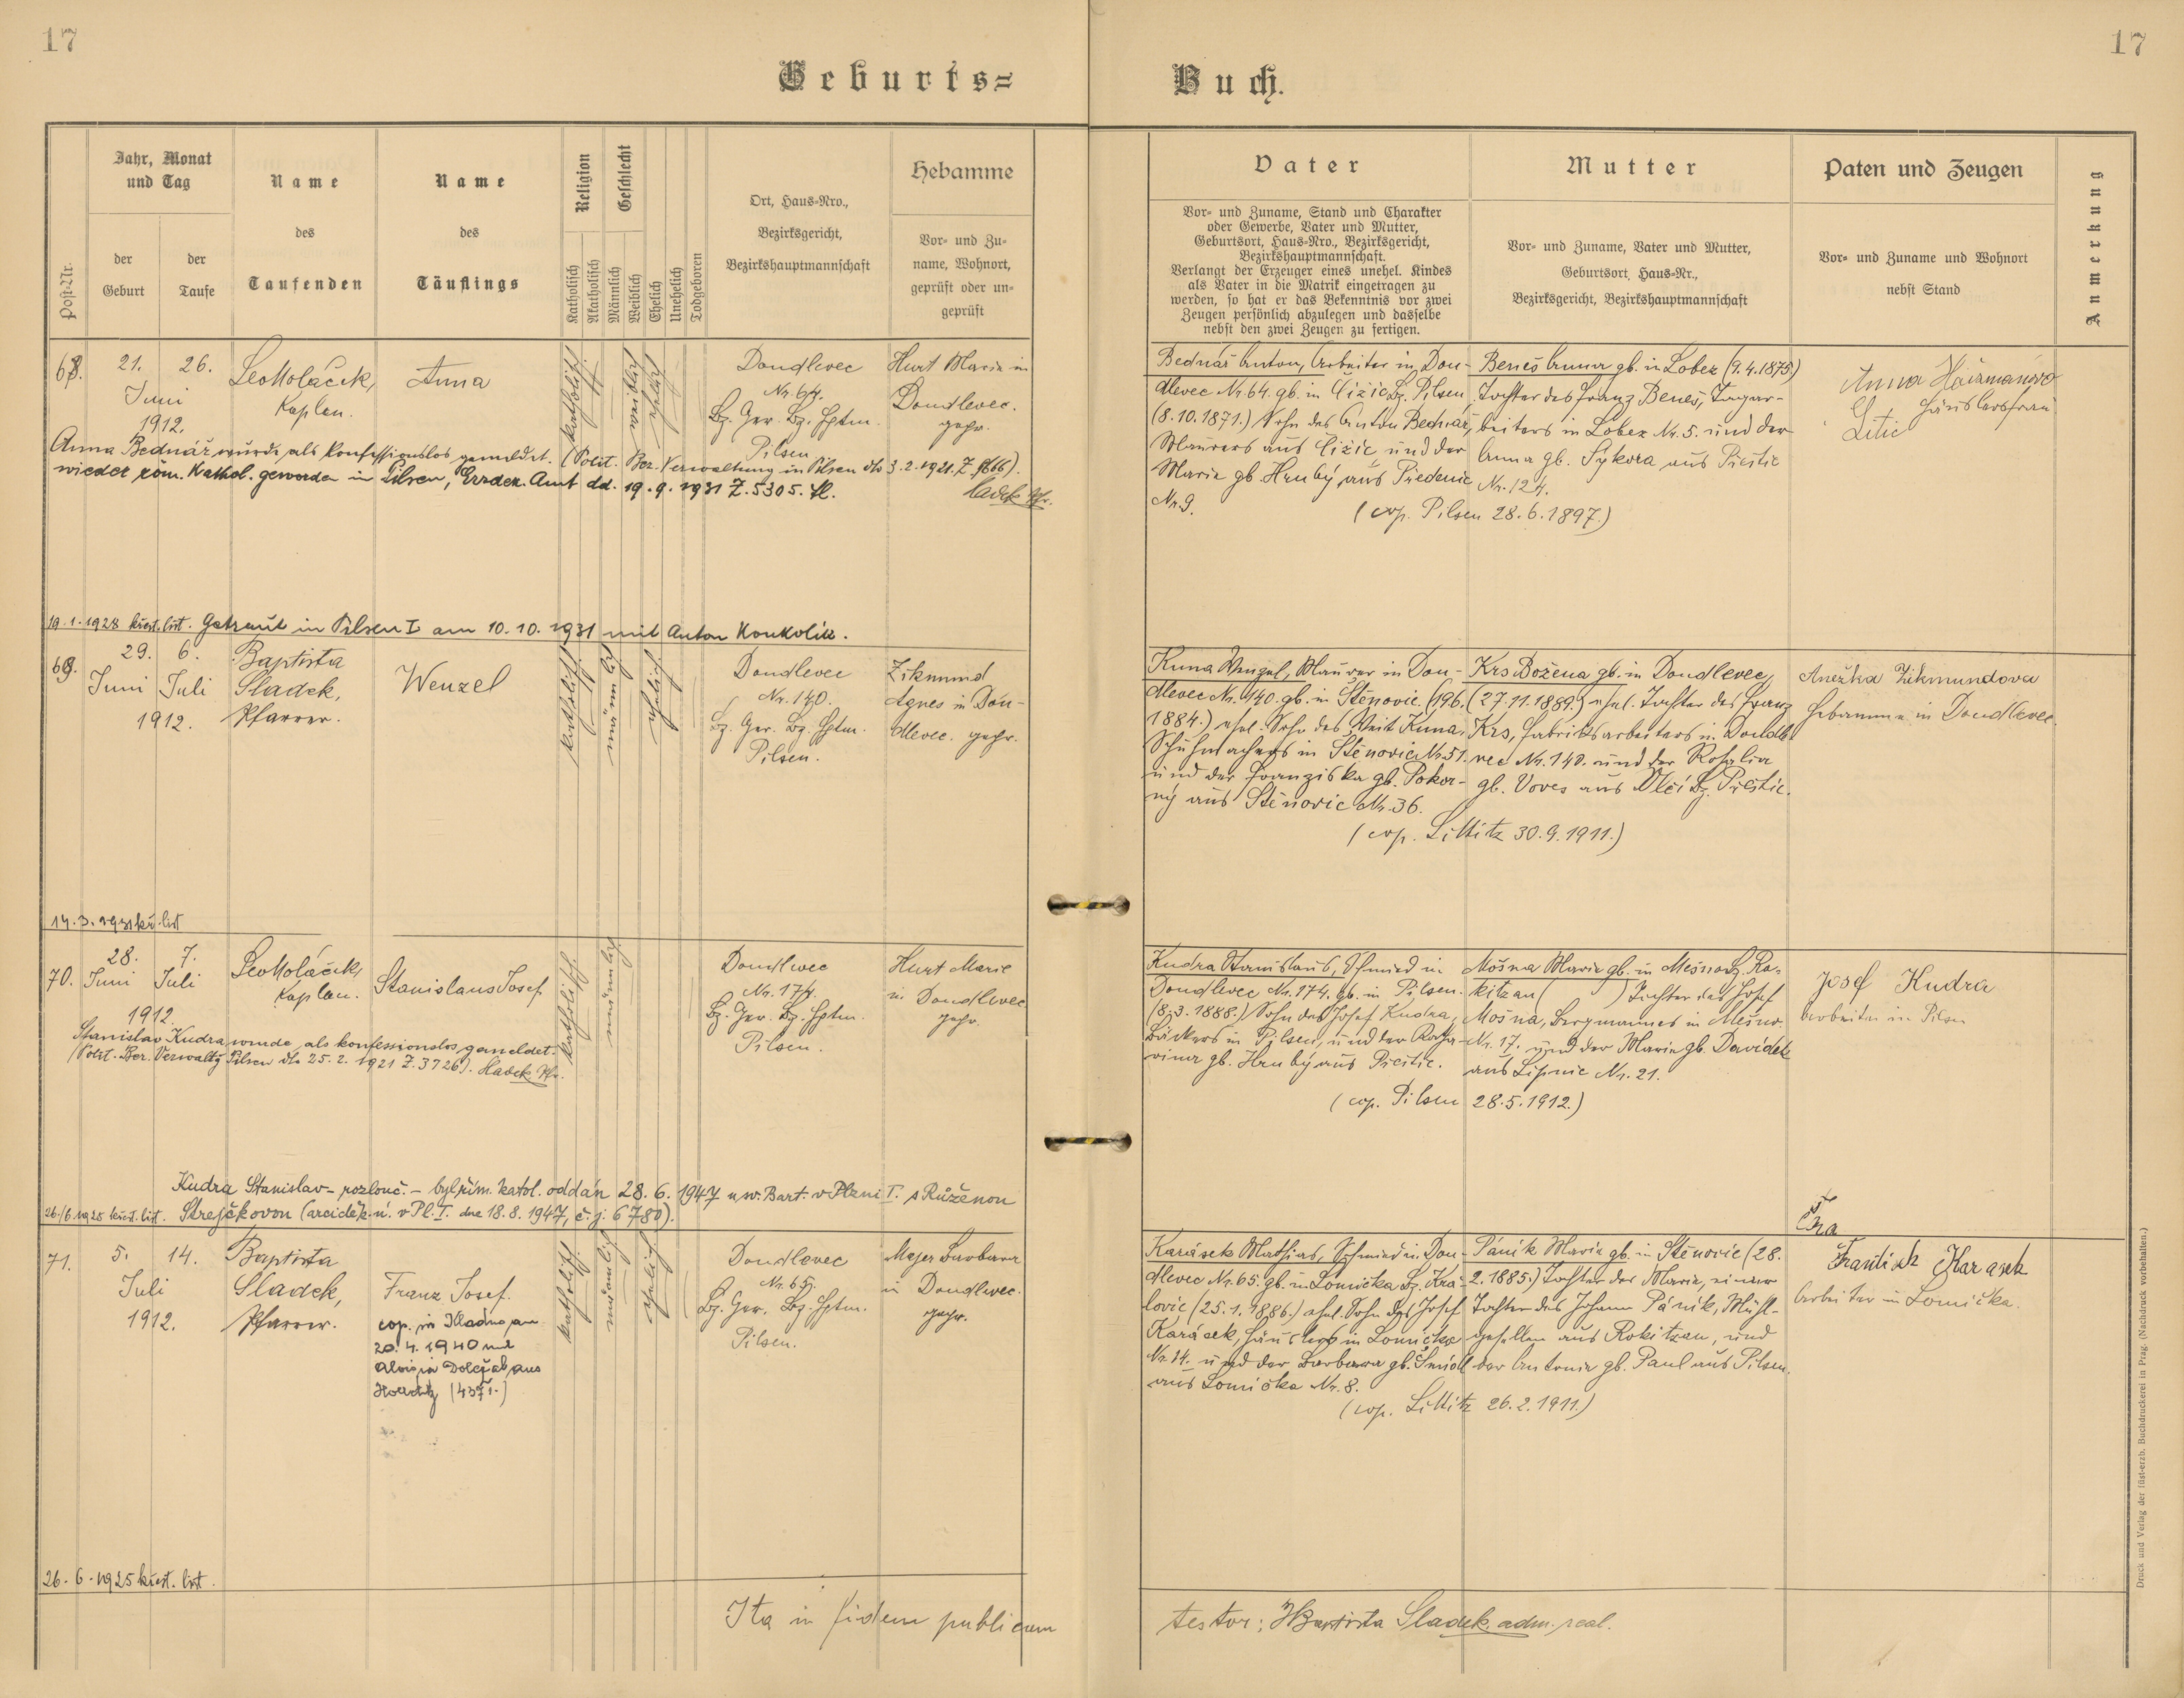 17
17
Geburts=
Buch.
Jahr, Monat
und Tag
Name
des
Taufenden
Name
des
Täuflings
Religion
Geschlecht
Ort, Haus=Nro.,
Bezirksgericht,
Bezirkshauptmannschaft
Hebamme
Vor= und Zu=
name, Wohnort,
geprüft oder un=
geprüft
Post=Nr.
der
Geburt
der
Taufe
Katholisch
Akatholisch
Männlich
Weiblich
Ehelich
Unehelich
Todgeboren
Vater
Vor= und Zuname, Stand und Charakter
oder Gewerbe, Vater und Mutter,
Geburtsort, Haus=Nro., Bezirksgericht,
Bezirkshauptmannschaft.
Verlangt der Erzeuger eines unehel. Kindes
als Vater in die Matrik eingetragen zu
werden, so hat er das Bekenntnis vor zwei
Zeugen persönlich abzulegen und dasselbe
nebst den zwei Zeugen zu fertigen.
Mutter
Vor= und Zuname, Vater und Mutter,
Geburtsort, Haus=Nr.,
Bezirksgericht, Bezirkshauptmannschaft
Paten und Zeugen
Vor= und Zuname und Wohnort
nebst Stand
Anmerkung
68.
21. 26.
Juni
1912.
Leo Koláček,
Kaplan.
Anna
katholisch
weiblich
ehelich
Doudlevec
Nr. 64.
Bz. Ger. Bz. Hptm.
Pilsen
Hurt Maria in
Doudlevec.
gepr.
Anna Bednář wurde als konfessionslos gemeldet. (Polit. Bez. Verwaltung in Pilsen dto 3.2.1921. Z.
wieder röm. kathol. geworden in Pilsen, Erzdek. Amt dd. 19.9.1931 Z. 5305.
Sladek Pfr.
19.1.1928 křest. list. Getraut in Pilsen I am 10.10.1931 mit Anton Koukolík.
Bednář Anton, Arbeiter in Dou-
dlevec Nr. 64. gb. in Čižic Bz. Pilsen
(8.10.1871.) Sohn des Anton Bednář,
Maurers aus Čižic und der
Maria gb. Hrubý aus Předenic
Nr. 9.
Beneš Anna gb. in Lobez (9.4.1875)
Tochter des Franz Beneš, Tagar-
beiters in Lobez Nr. 5. und der
Anna gb. Sýkora aus Přestic
Nr. 124.
(cop. Pilsen 28.6.1897.)
Häuslersfrau
Litic
69.
29. 6.
Juni Juli
1912.
Baptista
Sladek,
Pfarrer.
Wenzel
katholisch
männlich
ehelich
Doudlevec
Nr. 140.
Bz. Ger. Bz. Hptm.
Pilsen.
Zikmund
Agnes in Dou-
dlevec. gepr.
14.3.1931 kř. list
Kuna Wenzel, Maurer in Dou-
dlevec Nr. 140. gb. in Štěnovic (19.6.
1884.) ehel. Sohn des Veit Kuna,
Schuhmachers in Štěnovic Nr. 51.
und der Franziska gb. Pokor-
ný aus Štěnovic Nr. 36.
Krs Božena gb. in Doudlevec,
(27.11.1889.) ehel. Tochter des Franz
Krs, Fabriksarbeiters in Doudle-
vec Nr. 140. und der Rosalia
gb. Voves aus Vlčí Bz. Přestic.
(cop. Littitz 30.9.1911.)
Anežka Zikmundova
Hebamme in Doudlevec.
70.
28. 7.
Juni Juli
1912.
Leo Koláček,
Kaplan.
Stanislaus Josef
katholisch
männlich
Doudlevec
Nr. 174.
Bz. Ger. Bz. Hptm.
Pilsen.
Hurt Marie
in Doudlevec
gepr.
Stanislav Kudra wurde als konfessionslos gemeldet.
(Polit. Bez. Verwaltg Pilsen dto 25.2.1921 Z. 3726). Sladek Pfr.
Kudra Stanislav - rozlouč. - byl řím. katol. oddán 28.6.1947 u sv. Bart. v Plzni I. s Růženou
26./6.1928 křest. list. Strejčkovou (arciděk. ú. v Pl. I. dne 18.8.1947, č.j. 6780).
Kudra Stanislaus, Schmied in
Doudlevec Nr. 174. gb. in Pilsen.
(8.3.1888.) Sohn des Josef Kudra,
Bäckers in Pilsen, und der Katha-
rina gb. Hrubý aus Přestic.
Mošna Maria gb. in Mešno Bz. Ro-
kitzan ( ) Tochter des Josef
Mošna, Bergmannes in Mešno
Nr. 17. und der Maria gb. Davídek
aus Lipnic Nr. 21.
(cop. Pilsen 28.5.1912.)
Josef Kudra
Arbeiter in Pilsen
71.
5. 14.
Juli
1912.
Baptista
Sladek,
Pfarrer.
Franz Josef.
cop. in Kladno am
20.4.1940 mit
Aloisia Dolejšek aus
katholisch
männlich
ehelich
Doudlevec
Nr. 65.
Bz. Ger. Bz. Hptm.
Pilsen.
Majer Barbara
in Doudlevec.
gepr.
26.6.1925 křest. list.
Karásek Mathias, Schmied in Dou-
dlevec Nr. 65. gb. in Lomička Bz. Kra-
lovic (25.1.1886.) ehel. Sohn des Josef
Karásek, Häuslers in Lomička
Nr. 14. und der Barbara gb. Šmídl
aus Lomička Nr. 8.
Páník Maria gb. in Štěnovic (28.
2.1885.) Tochter der Maria, einer
Tochter des Johann Páník, Mühl-
gesellen aus Rokitzan, und
der Antonia gb. Paul aus Pilsen.
(cop. Littitz 26.2.1911.)
František Karasek
Arbeiter in Lomička.
Ita in fidem publicam
testor: J. Baptista Sladek, adm. real.
Druck und Verlag der fürst-erzb. Buchdruckerei in Prag. (Nachdruck vorbehalten.)